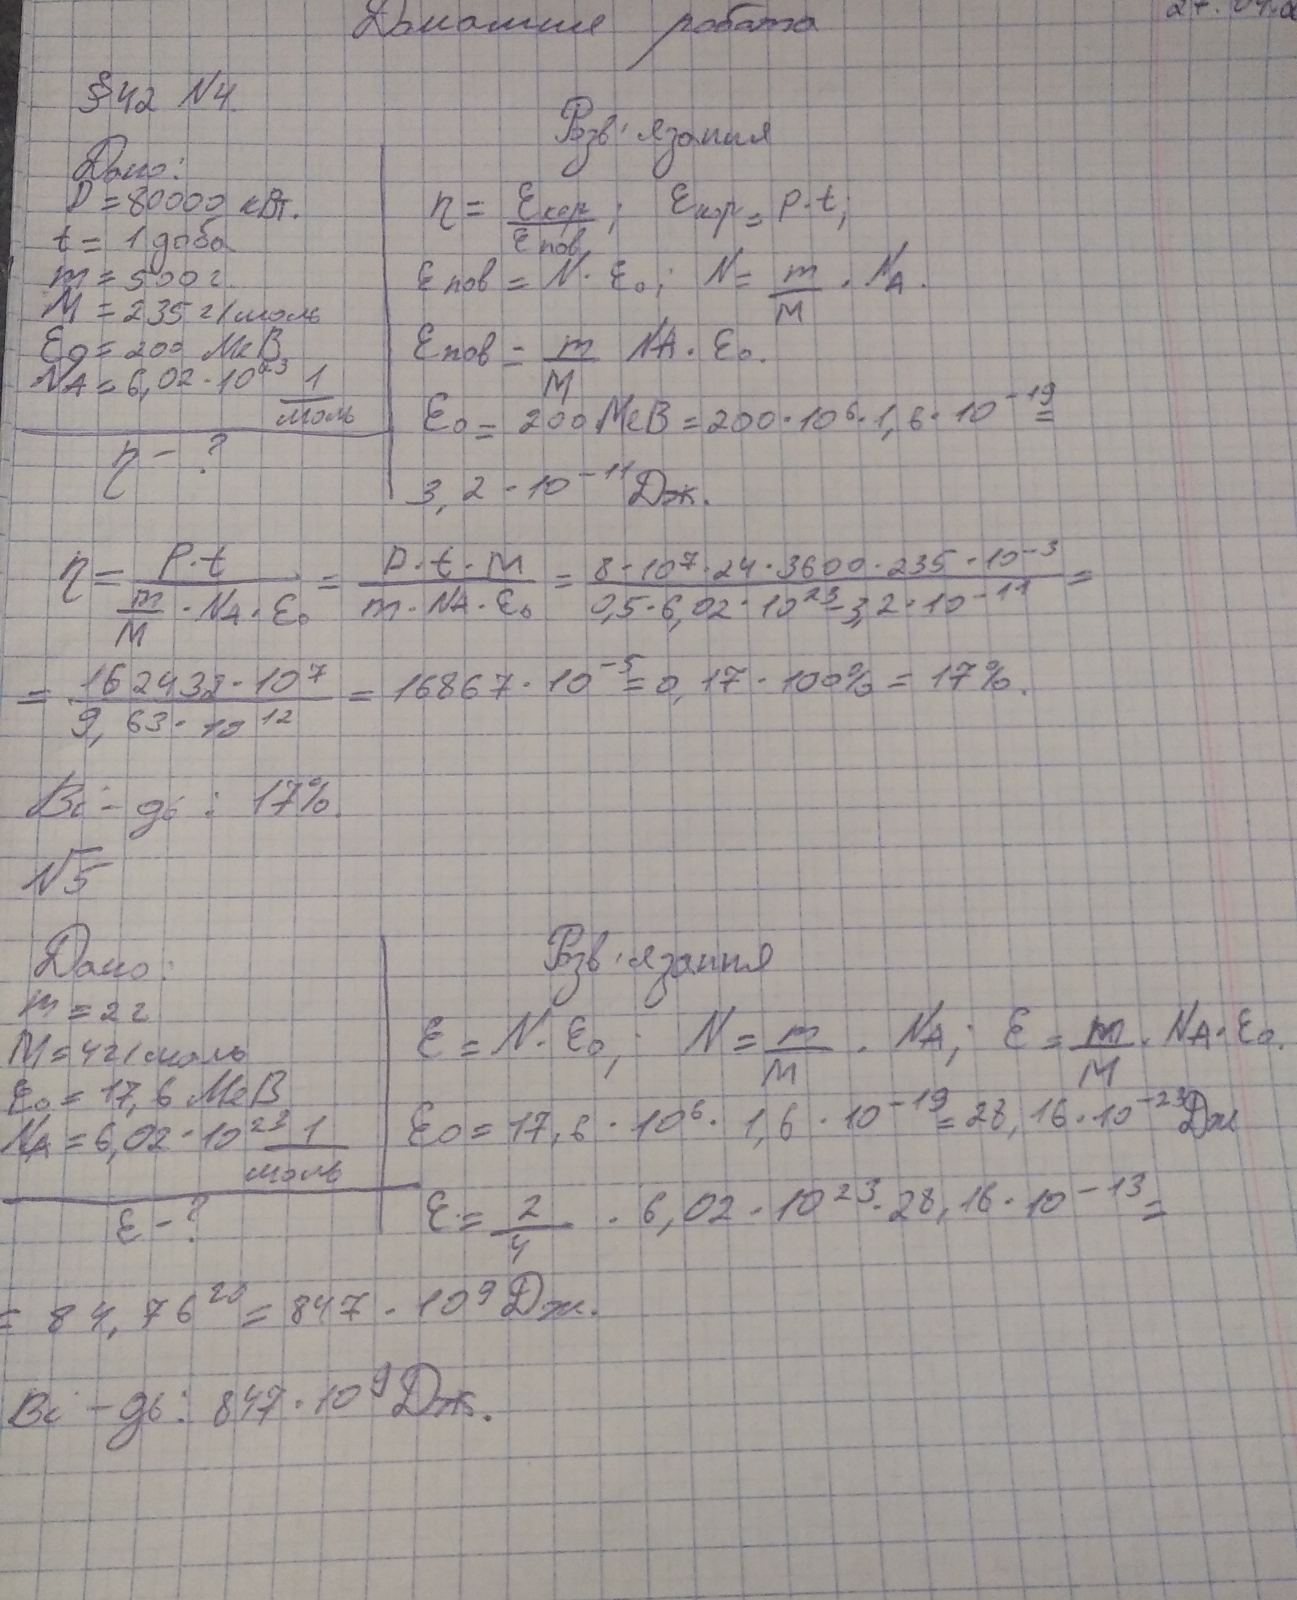 Домашня робота
27.04.
§42 №4
Дано:
P = 80000 кВт.
t = 1 доба
m = 500 г.
M = 235 г/моль
E₀ = 200 МеВ
N_A = 6,02·10²³ 1/моль
η - ?
Розв'язання
η = Eкор/Eпов; Eкор = P·t;
Eпов = N·E₀; N = m/M · N_A.
Eпов = m/M N_A·E₀.
E₀ = 200 МеВ = 200·10⁶·1,6·10⁻¹⁹ =
3,2·10⁻¹¹ Дж.
η = P·t / (m/M · N_A·E₀) = P·t·M / (m·N_A·E₀) = 8·10⁷·24·3600·235·10⁻³ / (0,5·6,02·10²³·3,2·10⁻¹¹) =
= 162432·10⁷ / 9,63·10¹² = 16867·10⁻⁵ = 0,17·100% = 17%.
Ві-дь: 17%.
№5
Дано:
m = 2 г
M = 4 г/моль
E₀ = 17,6 МеВ
N_A = 6,02·10²³ 1/моль
E - ?
Розв'язання
E = N·E₀; N = m/M · N_A; E = m/M · N_A·E₀.
E₀ = 17,6·10⁶·1,6·10⁻¹⁹ = 28,16·10⁻²³ Дж
E = 2/4 · 6,02·10²³·28,16·10⁻¹³ =
= 84,76²⁰ = 847·10⁹ Дж.
Ві-дь: 847·10⁹ Дж.